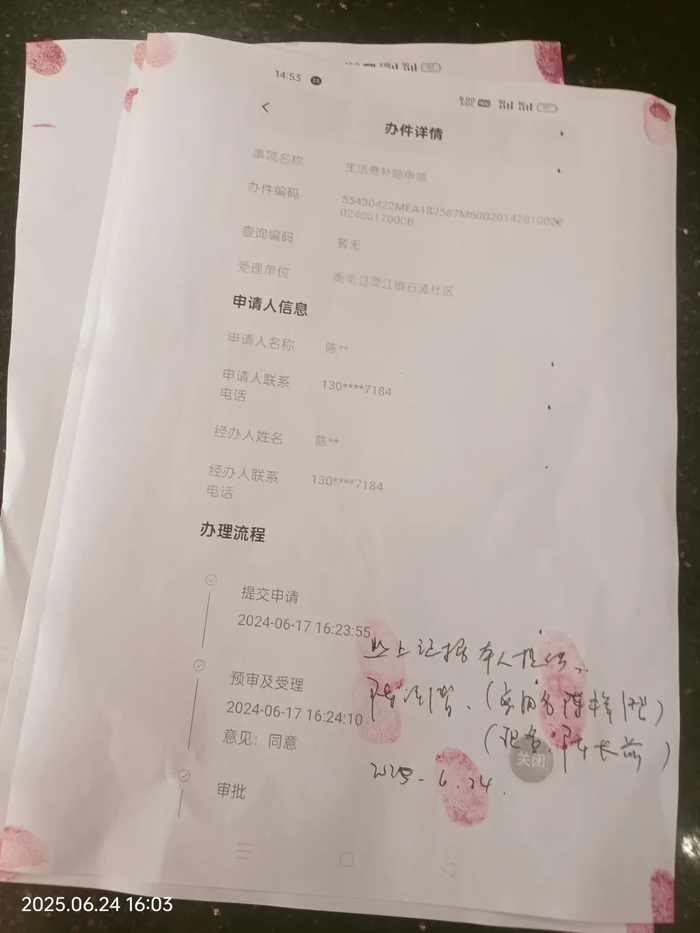 14:53
办件详情
事项名称 生活费补贴申领
办件编码 55430422MEA182587M60020142010020
0240617000B
查询编码 暂无
受理单位
申请人信息
申请人名称 陈**
申请人联系 130****7184
电话
经办人姓名 陈**
经办人联系 130****7184
电话
办理流程
提交申请
2024-06-17 16:23:55
预审及受理
2024-06-17 16:24:10
意见：同意
审批
以上记据本人提供、
2025-6.24.
关闭
2025.06.24 16:03